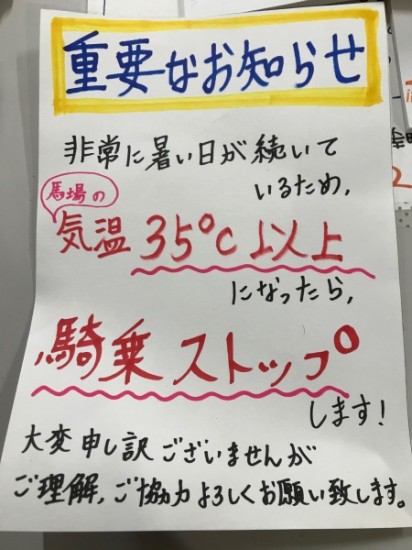 重要なお知らせ
非常に暑い日が続いて
いるため,
馬場の
気温 35°C以上
になったら,
騎乗ストップ
します!
大変申し訳ございませんが
ご理解,ご協力よろしくお願い致します。